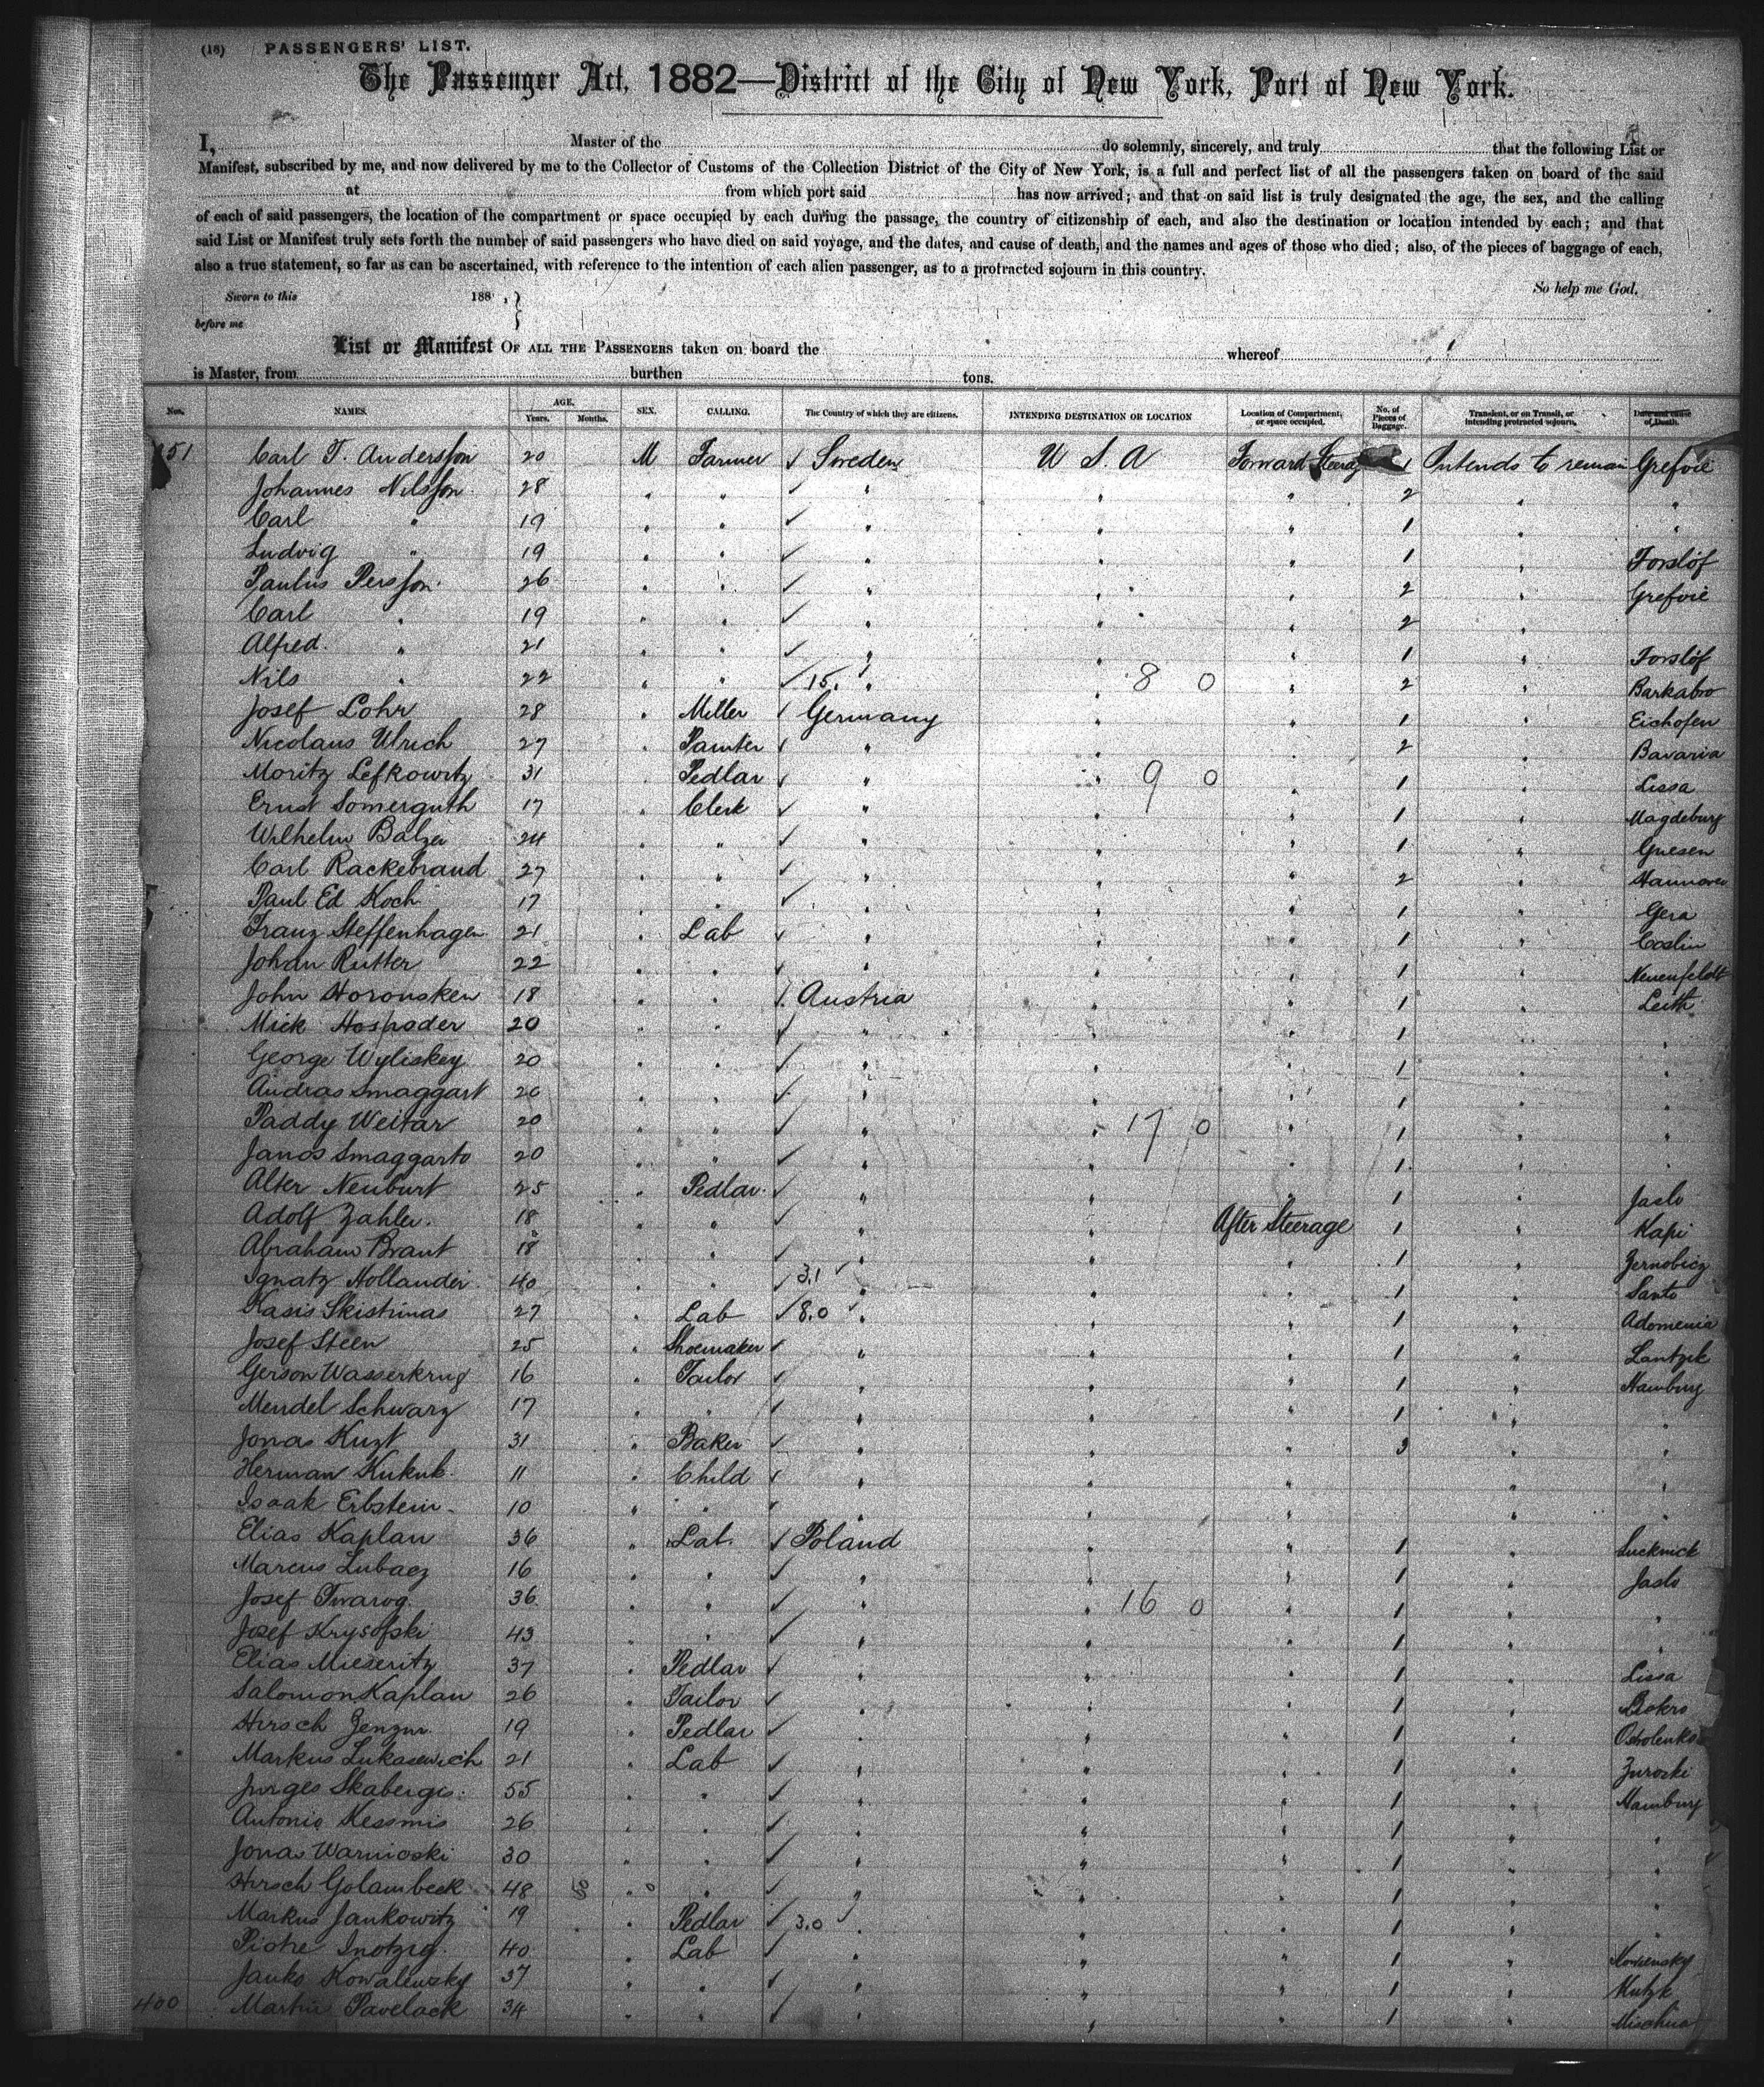 (18) PASSENGERS' LIST.
The Passenger Act, 1882—District of the City of New York, Port of New York.
I, Master of the do solemnly, sincerely, and truly that the following List or
Manifest, subscribed by me, and now delivered by me to the Collector of Customs of the Collection District of the City of New York, is a full and perfect list of all the passengers taken on board of the said
at from which port said has now arrived; and that on said list is truly designated the age, the sex, and the calling
of each of said passengers, the location of the compartment or space occupied by each during the passage, the country of citizenship of each, and also the destination or location intended by each; and that
said List or Manifest truly sets forth the number of said passengers who have died on said voyage, and the dates, and cause of death, and the names and ages of those who died; also, of the pieces of baggage of each,
also a true statement, so far as can be ascertained, with reference to the intention of each alien passenger, as to a protracted sojourn in this country.
Sworn to this 188 , } So help me God.
before me
List or Manifest OF ALL THE PASSENGERS taken on board the whereof
is Master, from burthen tons.
Nos. NAMES. AGE. Years. Months. SEX. CALLING. The Country of which they are citizens. INTENDING DESTINATION OR LOCATION Location of Compartment, or space occupied. No. of Pieces of Baggage. Transient, or on Transit, or intending protracted sojourn. Date and cause of Death.
351 Carl T. Andersson 20 M Farmer ✓ Sweden U S A Forward Steerage 1 Intends to remain Grefvie
Johannes Nilsson 28 " " ✓ " " " 2 " "
Carl " 19 " " ✓ " " " 1 "
Ludvig " 19 " " ✓ " " " 1 " Forslöf
Paulus Persson 26 " " ✓ " " " 2 " Grefvie
Carl " 19 " " ✓ " " " 2 "
Alfred " 21 " " ✓ " " " 1 " Forslöf
Nils " 22 " " ✓ 15. " " 8 0 " 2 " Barkabro
Josef Lohr 28 " Miller ✓ Germany " " 1 " Eichofen
Nicolaus Ulrich 27 " Painter ✓ " " 2 " Bavaria
Moritz Lefkowitz 31 " Pedlar ✓ " " 9 0 " 1 " Lissa
Ernst Somerguth 17 " Clerk ✓ " " " 1 " Magdeburg
Wilhelm Balzer 24 " " ✓ " " " 1 " Gnesen
Carl Rackebrand 27 " " ✓ " " " 2 " Hannover
Paul Ed Koch 17 " " ✓ " " " 1 " Gera
Franz Steffenhagen 21 " Lab ✓ " " " 1 " Coslin
Johan Rutter 22 " " ✓ " " " 1 " Neuenfeldt
John Horonsken 18 " " ✓ Austria " " 1 " Leith
Mick Hospoder 20 " " ✓ " " " 1 " "
George Wyliskey 20 " " ✓ " " " 1 " "
Andras Smaggart 26 " " ✓ " " " 1 " "
Paddy Weitar 20 " " ✓ " " 17 0 " 1 " "
Janos Smaggarto 20 " " ✓ " " " 1 " "
Alter Neuburt 25 " Pedlar ✓ " " " 1 " Jaslo
Adolf Zahler 18 " " ✓ " " After Steerage 1 " Kapi
Abraham Brant 18 " " ✓ " " " 1 "
Ignatz Hollander 40 " " ✓ 3.1 " " " 1 " Santo
Kasis Skistrinas 27 " Lab ✓ 8.0 " " " 1 " Adomenia
Josef Steen 25 " Shoemaker ✓ " " " 1 "
Gerson Wasserkrug 16 " Tailor ✓ " " " 1 " Hamburg
Mendel Schwarz 17 " " ✓ " " " 1 " "
Jonas Kuzt 31 " Baker ✓ " " " 3 " "
Herman Kukuk 11 " Child ✓ " " " " "
Isaak Erbstein 10 " " ✓ " " " " "
Elias Kaplan 36 " Lab. ✓ Poland " " 1 "
Marcus Lubacz 16 " " ✓ " " " 1 " Jaslo
Josef Twarog 36 " " ✓ " " 16 0 " 1 " "
Josef Krysofski 43 " " ✓ " " " 1 " "
Elias Mieseritz 37 " Pedlar ✓ " " " 1 " Lissa
Salomon Kaplan 26 " Tailor ✓ " " " 1 "
Hirsch Zenzur 19 " Pedlar ✓ " " " 1 "
Markus Lukasewich 21 " Lab ✓ " " " 1 " Zuroski
Jurges Skabergis 55 " " ✓ " " " 1 " Hamburg
Antonio Kessmis 26 " " ✓ " " " 1 " "
Jonas Warnioski 30 " " ✓ " " " 1 " "
Hirsch Golambeck 48 " " ✓ " " " 1 " "
Markus Jankowitz 19 " Pedlar ✓ 3.0 " " " 1 " "
Piotre Inotzig 40 " Lab ✓ " " " 1 "
Janko Kowalewsky 37 " " ✓ " " " 1 " Kutzk
400 Martin Pavelack 34 " " ✓ " " " 1 "